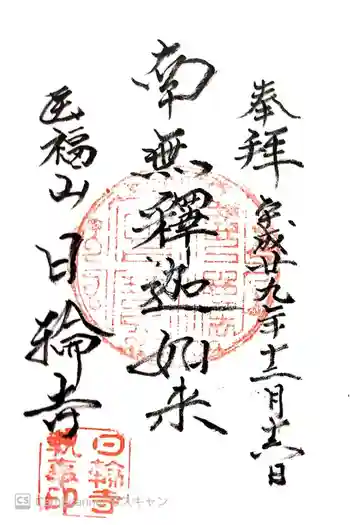 奉拝
平成廿九年十二月十六日
南無釋迦如来
医福山
日輪寺
日輪寺
執事印
CS CamScannerでスキャン